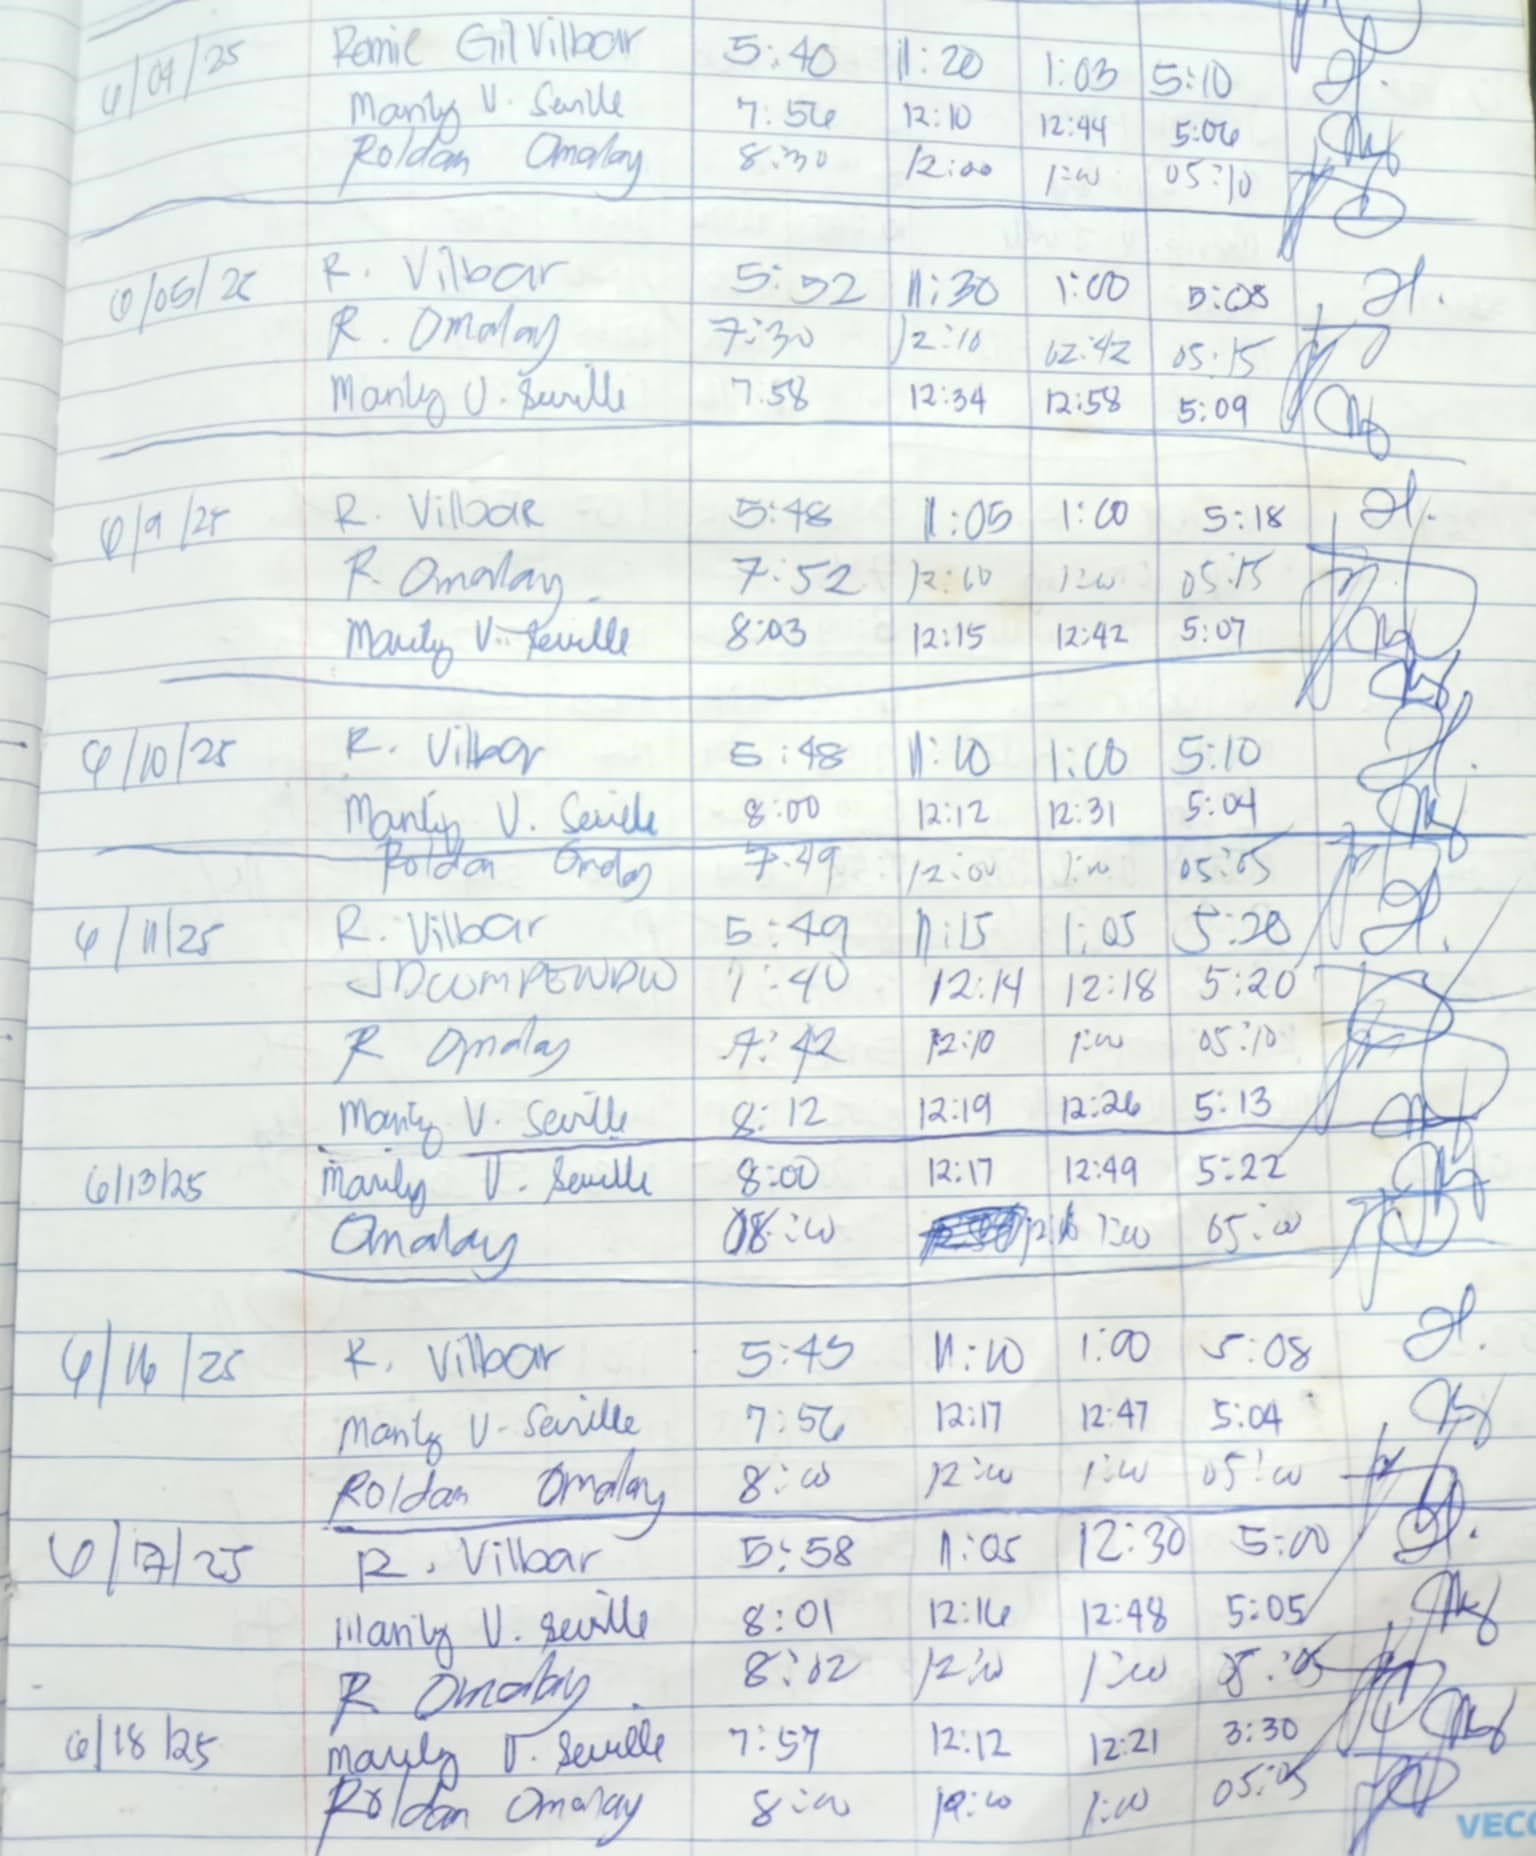 6/04/25 Romie Gil Vilbar 5:40 11:20 1:03 5:10
Marily V. Seville 7:56 12:10 12:44 5:06
Roldan Omalay 8:30 12:00 1:00 05:10
6/05/25 R. Vilbar 5:52 11:30 1:00 5:08
R. Omalay 7:30 12:10 12:42 05:15
Marily V. Seville 7:58 12:34 12:58 5:09
6/9/25 R. Vilbar 5:48 11:05 1:00 5:18
R. Omalay 7:52 12:00 1:00 05:15
Marily V. Seville 8:03 12:15 12:42 5:07
6/10/25 R. Vilbar 5:48 11:10 1:00 5:10
Marily V. Seville 8:00 12:12 12:31 5:04
Roldan Omalay 7:49 12:00 1:00 05:05
6/11/25 R. Vilbar 5:49 11:15 1:05 5:20
7:40 12:14 12:18 5:20
R Omalay 7:42 12:10 1:00 05:10
Marily V. Seville 8:12 12:19 12:26 5:13
6/13/25 Marily V. Seville 8:00 12:17 12:49 5:22
Omalay 08:00 1:00 05:00
6/16/25 R. Vilbar 5:45 11:10 1:00 5:08
Marily V. Seville 7:56 12:17 12:47 5:04
Roldan Omalay 8:00 12:00 1:00 05:00
6/17/25 R. Vilbar 5:58 11:05 12:30 5:00
Marily V. Seville 8:01 12:16 12:48 5:05
R Omalay 8:02 12:00 1:00 05:05
6/18/25 Marily V. Seville 7:57 12:12 12:21 3:30
Roldan Omalay 8:00 12:00 1:00 05:05
VECO